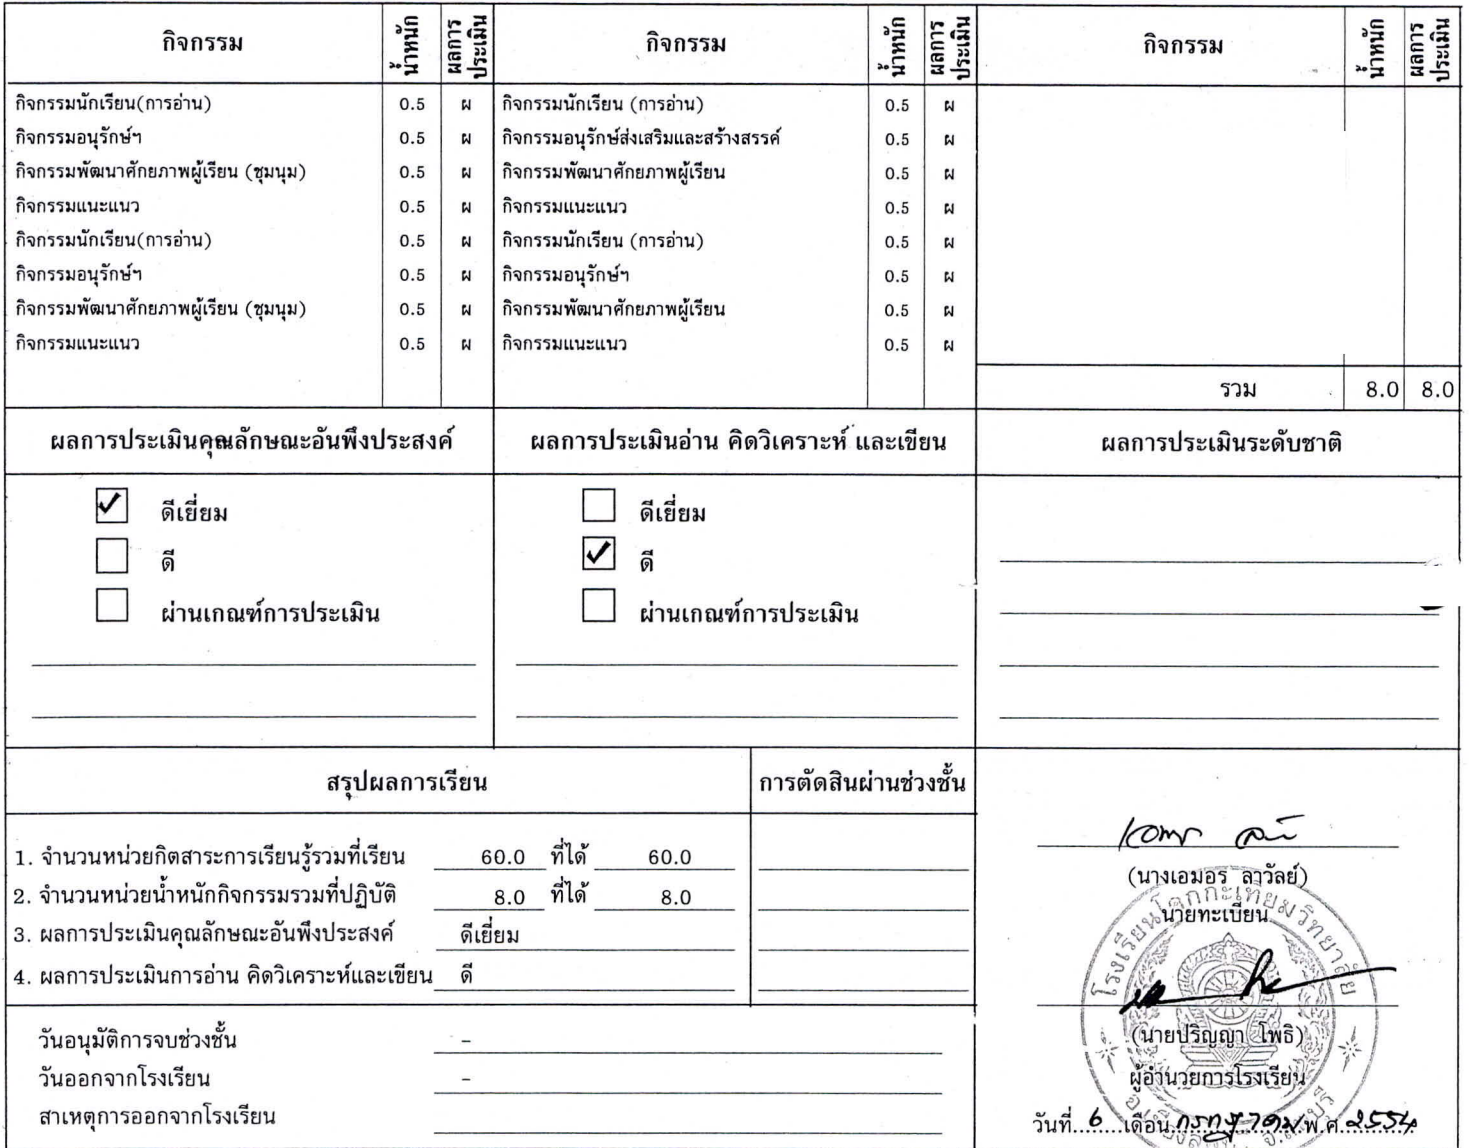 กิจกรรม น้ำหนัก ผลการประเมิน กิจกรรม น้ำหนัก ผลการประเมิน กิจกรรม น้ำหนัก ผลการประเมิน
กิจกรรมนักเรียน(การอ่าน) 0.5 ผ กิจกรรมนักเรียน (การอ่าน) 0.5 ผ
กิจกรรมอนุรักษ์ฯ 0.5 ผ กิจกรรมอนุรักษ์ส่งเสริมและสร้างสรรค์ 0.5 ผ
กิจกรรมพัฒนาศักยภาพผู้เรียน (ชุมนุม) 0.5 ผ กิจกรรมพัฒนาศักยภาพผู้เรียน 0.5 ผ
กิจกรรมแนะแนว 0.5 ผ กิจกรรมแนะแนว 0.5 ผ
กิจกรรมนักเรียน(การอ่าน) 0.5 ผ กิจกรรมนักเรียน (การอ่าน) 0.5 ผ
กิจกรรมอนุรักษ์ฯ 0.5 ผ กิจกรรมอนุรักษ์ฯ 0.5 ผ
กิจกรรมพัฒนาศักยภาพผู้เรียน (ชุมนุม) 0.5 ผ กิจกรรมพัฒนาศักยภาพผู้เรียน 0.5 ผ
กิจกรรมแนะแนว 0.5 ผ กิจกรรมแนะแนว 0.5 ผ
รวม 8.0 8.0
ผลการประเมินคุณลักษณะอันพึงประสงค์ ผลการประเมินอ่าน คิดวิเคราะห์ และเขียน ผลการประเมินระดับชาติ
ดีเยี่ยม ดีเยี่ยม
ดี ดี
ผ่านเกณฑ์การประเมิน ผ่านเกณฑ์การประเมิน
สรุปผลการเรียน การตัดสินผ่านช่วงชั้น
1. จำนวนหน่วยกิตสาระการเรียนรู้รวมที่เรียน 60.0 ที่ได้ 60.0
2. จำนวนหน่วยน้ำหนักกิจกรรมรวมที่ปฏิบัติ 8.0 ที่ได้ 8.0
3. ผลการประเมินคุณลักษณะอันพึงประสงค์ ดีเยี่ยม
4. ผลการประเมินการอ่าน คิดวิเคราะห์และเขียน ดี
วันอนุมัติการจบช่วงชั้น -
วันออกจากโรงเรียน -
สาเหตุการออกจากโรงเรียน
(นางเอมอร ลาวัลย์)
นายทะเบียน
โรงเรียนโคกกะเทียมวิทยาลัย
(นายปริญญา โพธิ)
ผู้อำนวยการโรงเรียน
วันที่ 6 เดือน กรกฎาคม พ.ศ. 2554